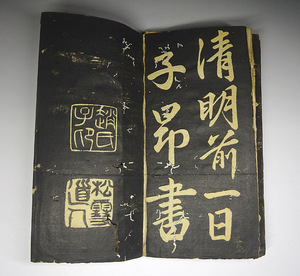 清明前一日
子昂書
趙氏子昂
松雪道人